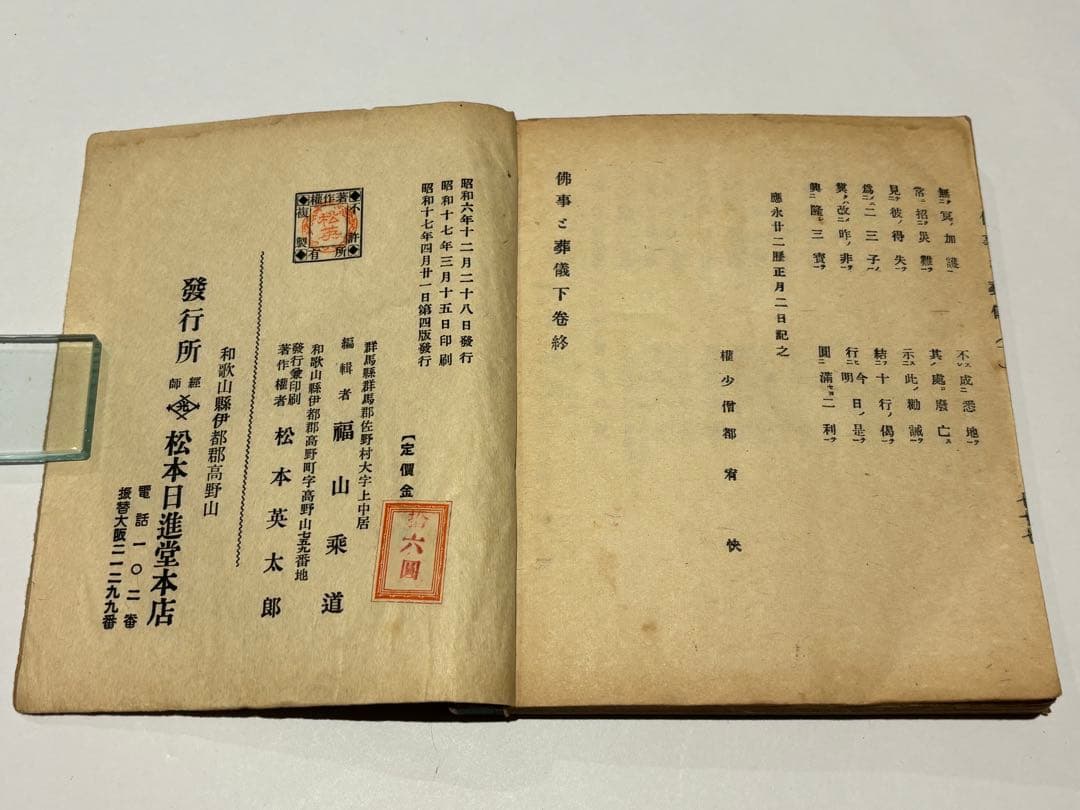 無冥ノ加護一 不レ成二悉地一
常ニ招二災難一ヲ 其ノ處廢亡ス
見二彼ノ得失一ヲ 示二此ノ勸誡一ヲ
爲ノ二三子ノ 結二十行ノ偈一ヲ
冀クハ改二昨ノ非一ヲ 行ヒ今日ノ是一ヲ
興二隆シ三寶一ヲ 圓二滿セヨ二利一ヲ
應永廿二曆正月二日記之
權少僧都宥快
佛事と葬儀下卷終
昭和六年十二月二十八日發行
昭和十七年三月十五日印刷
昭和十七年四月廿一日第四版發行
【定價金
拾六圓
著作權所有
不許複製
松英
群馬縣群馬郡佐野村大字上中居
編輯者 福山乘道
和歌山縣伊都郡高野町字高野山七五九番地
發行兼印刷
著作權者 松本英太郎
和歌山縣伊都郡高野山
發行所 經師 松本日進堂本店
電話一〇二番
振替大阪二一二九九番